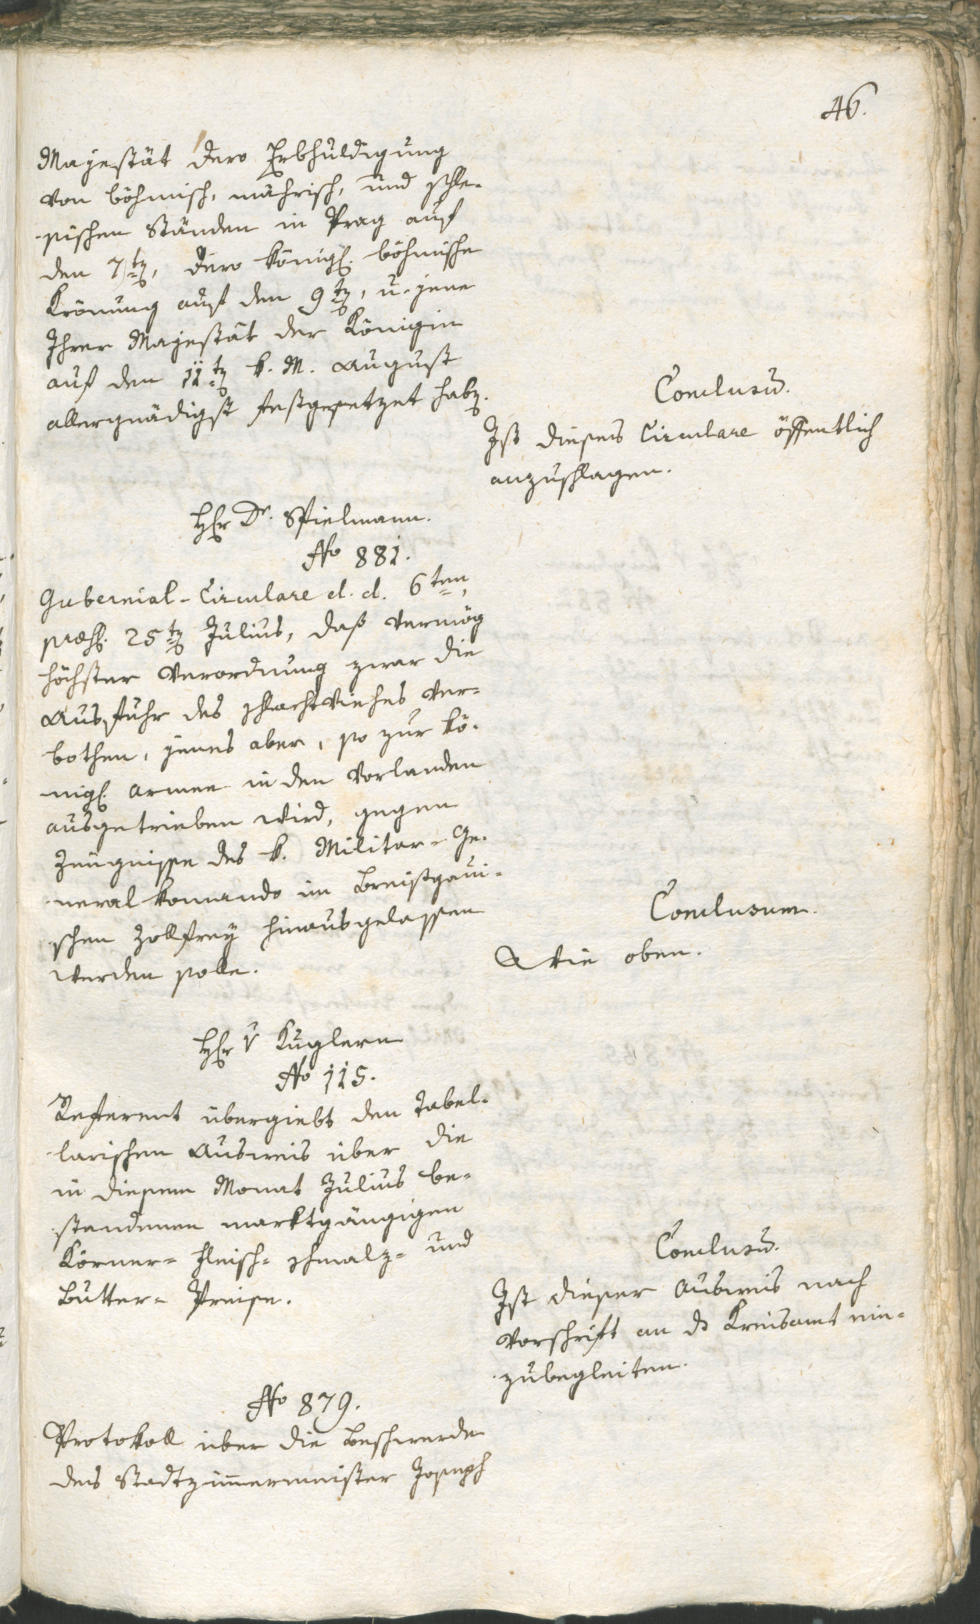 46.
Majestät dero Erbhuldigung
von böhmisch, mährisch, und schle-
sischen Ständen in Prag auf
den 7ten, dero königl. böhmische
Krönung auf den 9ten, u. jene
Ihrer Majestät der Königin
auf den 11ten k. M. August
allergnädigst festgesetzet haben.
Conclusum.
Ist dieses Circulare öffentlich
anzuschlagen.
Hr Dr. Spielmann.
No 881.
Gubernial-Circulare d. d. 6ten,
praes. 25ten Julius, daß vermög
höchster Verordnung zwar die
Ausfuhr des Schlachtviehes ver-
bothen, jenes aber, so zur kö-
nigl. Armee in den Vorlanden
ausgetrieben wird, gegen
Zeugnisse des k. Militar-Ge-
neral Komando im Breisgaui-
schen Zollfrey hinausgelassen
werden solle.
Conclusum.
Wie oben.
Hr v Kuglern
No 115.
Referent übergiebt den Tabel-
larischen Ausweis über die
in diesem Monat Julius be-
standenen marktgängigen
Körner- Fleisch- Schmalz- und
Butter- Preise.
Conclusum.
Ist dieser Ausweis nach
Vorschrift an ds Kreisamt ein-
zubegleiten.
No 879.
Protokoll über die Beschwerde
des Stadtzimmermeister Joseph